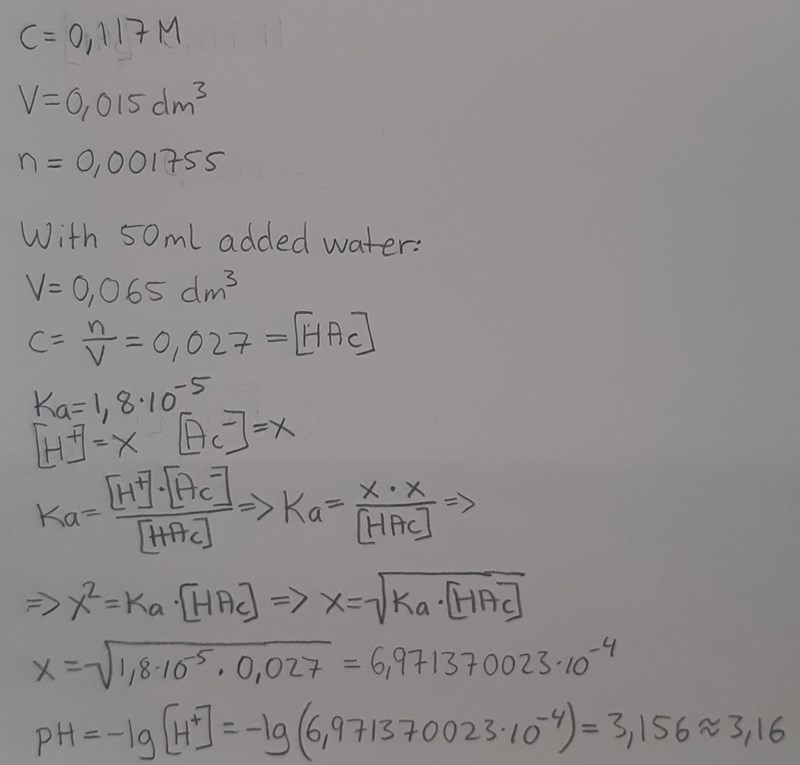 C = 0,117 M
V = 0,015 dm³
n = 0,001755
With 50ml added water:
V = 0,065 dm³
C = n/V = 0,027 = [HAc]
Ka = 1,8·10⁻⁵
[H⁺] = x [Ac⁻] = x
Ka = [H⁺]·[Ac⁻]/[HAc] => Ka = x·x/[HAc] =>
=> x² = Ka·[HAc] => x = √(Ka·[HAc])
x = √(1,8·10⁻⁵ · 0,027) = 6,971370023·10⁻⁴
pH = -lg[H⁺] = -lg(6,971370023·10⁻⁴) = 3,156 ≈ 3,16